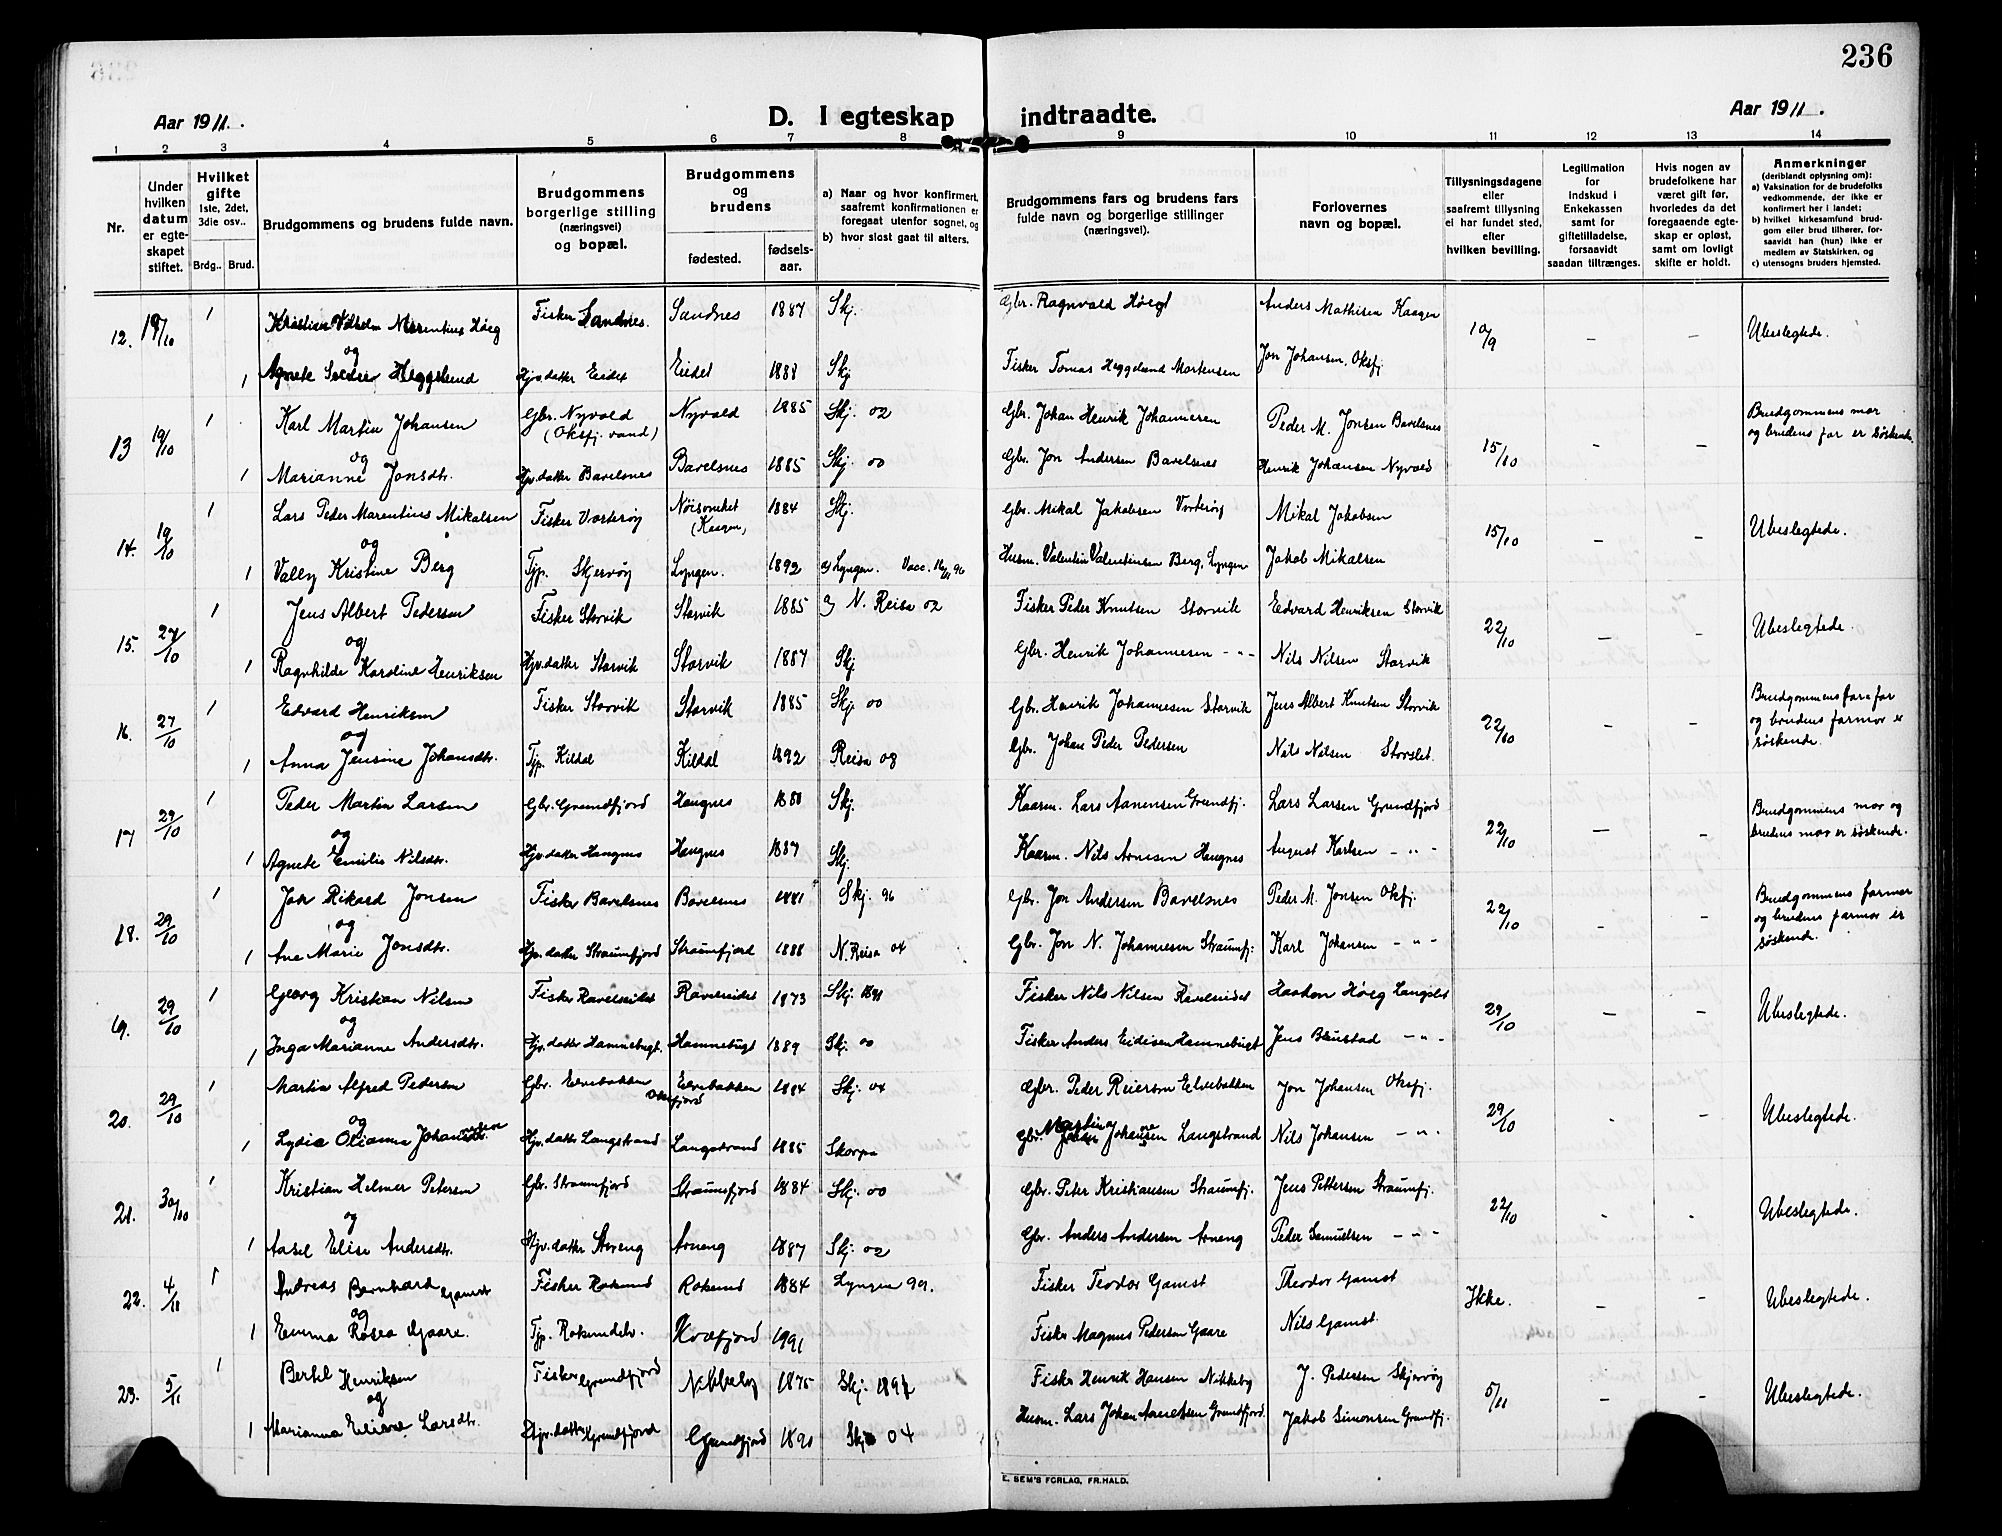 236
Aar 1911.
D. I egteskap indtraadte.
Aar 1911.
1 2 3 4 5 6 7 8 9 10 11 12 13 14
Nr.
Under hvilken datum er egteskapet stiftet.
Hvilket gifte 1ste, 2det, 3die osv..
Brdg.. Brud.
Brudgommens og brudens fulde navn.
Brudgommens borgerlige stilling (næringsvei) og bopæl.
Brudgommens og brudens
fødested.
fødselsaar.
a) Naar og hvor konfirmert, saafremt konfirmationen er foregaat utenfor sognet, og
b) hvor sidst gaat til alters.
Brudgommens fars og brudens fars fulde navn og borgerlige stillinger (næringsvei).
Forlovernes navn og bopæl.
Tillysningsdagene eller saafremt tillysning ei har fundet sted, efter hvilken bevilling.
Legitimation for indskud i Enkekassen samt for giftetilladelse, forsaavidt saadan tiltrænges.
Hvis nogen av brudefolkene har været gift før, hvorledes da det foregaaende egteskap er opløst, samt om lovligt skifte er holdt.
Anmerkninger (deriblandt oplysning om):
a) Vaksination for de brudefolks vedkommende, der ikke er konfirmert her i landet;
b) hvilket kirkesamfund brudgom eller brud tilhører, forsaavidt han (hun) ikke er medlem av Statskirken, og
c) utensogns bruders hjemsted.
12. 1 Kristian Vilhelm Marentius Høeg Fisker Sandnes. Sandnes 1887 Skj. Gbr. Ragnvald Høegh Anders Mathisen Kaagen 10/9 – – Ubeslegtede.
og
1 Agnete Heggelund Hjv. datter Eidet Eidet 1888 Skj Fisker Tomas Heggelund Mortensen Jon Johansen, Oksfj
13 19/10 1 Karl Martin Johansen Gbr. Nyvold (Oksfj. vand) Nyvold 1885 Skj. 02 Gbr. Johan Henrik Johannesen Peder M. Jonsen Bavelsnes 15/10 – – Brudgommens mor og brudens far er søskende.
og
1 Marianne Jonsdtr. Hjv. datter Bavelsnes Bavelsnes 1885 Skj. 00 Gbr. Jon Andersen Bavelsnes Henrik Johansen Nyvold
14. 19/10 1 Lars Peder Marentius Mikalsen Fisker Vorterøy (Kaagen) 1884 Skj. Gbr. Mikal Jakobsen Vorterøy Mikal Jakobsen 15/10 – – Ubeslegtede.
og
1 Vally Kristine Berg Tjp. Skjervøy Lyngen. 1892 a) Lyngen. Vacc. 96 Husm. Valentin Valentinsen Berg, Lyngen Jakob Mikalsen
15. 27/10 1 Jens Albert Pedersen Fisker Storvik Storvik 1885 a) N. Reisa 02 Fisker Peder Knutsen Storvik Edvard Henriksen Storvik 22/10 – – Ubeslegtede.
og
1 Ragnhilde Karoline Henriksen Hjv. datter Storvik Storvik 1887 Skj Gbr. Henrik Johannesen – " – Nils Nilsen Storvik
16. 27/10 1 Edvard Henriksen Fisker Storvik Storvik 1885 Skj. 00 Gbr. Henrik Johannesen Storvik Jens Albert Knutsen Storvik 22/10 – – Brudgommens fars far og brudens farmor er søskende.
og
1 Anna Jensine Johansdtr. Tjp. Kildal Kildal 1892 Reisa 08 Gbr. Johan Peder Pedersen Nils Nilsen Storslet.
17 29/10 1 Peder Martin Larsen Gbr. Grundfjord Haugnes 1880 Skj. Kaarm. Lars Aanensen Grundfj. Lars Larsen Grundfjord 22/10 – – Brudgommens mor og brudens mor er søskende.
og
1 Agnete Emilie Nilsdtr. Hjv. datter Haugnes Haugnes 1887 Skj. Kaarm. Nils Arnesen Haugnes August Karlsen – " –
18. 29/10 1 Jon Rikard Jonsen Fisker Bavelsnes Bavelsnes 1881 Skj. 96 Gbr. Jon Andersen Bavelsnes Peder M. Jonsen Oksfj. 22/10 – – Brudgommens farmor og brudens farmor er søskende.
og
1 Ane Marie Jonsdtr. Hjv. datter Straumfjord Straumfjord 1888 N. Reisa 04 Gbr. Jon N. Johannesen Straumfj. Karl Johansen – " –
19. 29/10 1 Georg Kristian Nilsen Fisker Ravelseidet Ravelseidet 1873 Skj. 1891 Fisker Nils Nilsen Ravelseidet Haakon Høeg Langslet 29/10 – – Ubeslegtede.
og
1 Inga Marianne Andersdtr. Hjv. datter Hamnebugt. Hamnebugt 1889 Skj. 00 Fisker Anders Eidisen Hamnebugt Jens – " –
20. 29/10 1 Martin Alfred Pedersen Gbr. Elvebakken Oksfjord Elvebakken 1884 Skj. 04 Gbr. Peder Reiersen Elvebakken Jon Johansen Oksfj. 29/10 – – Ubeslegtede.
og
1 Lydia Olianna Hjv. datter Langstrand Langstrand 1885 Skorpa Gbr. Johansen Langstrand Nils Johansen – " –
21. 30/10 1 Kristian Helmer Petersen Gbr. Straumfjord Straumfjord 1884 Skj. 00 Gbr. Peter Kristiansen Straumfj. Jens Pettersen Straumfj. 22/10 – – Ubeslegtede.
og
1 Aasel Elise Andersdtr. Hjv. datter 1887 Skj. 02 Gbr. Anders Andersen Peder Samuelsen – " –
22. 4/11 1 Andreas Bernhard Gamst Fisker Rotsund Rotsund 1884 Lyngen 99. Fisker Teodor Gamst Theodor Gamst Ikke. – – Ubeslegtede.
og
1 Emma Rosea Gaare. Tjp. Rotsundelv. Kvæfjord 1991 Fisker Magnus Pedersen Gaare Nils Gamst.
23. 5/11 1 Bertil Henriksen Fisker Grundfjord Nikkeby 1875 Skj. Fisker Henrik Hansen Nikkeby J. Pedersen Skjervøy 5/11 – – Ubeslegtede.
og
1 Marianna Larsdtr. Hjv. datter Grundfjord Grundfjord 1890 Skj 04 Husm. Lars Johan Grundfjord. Jakob Simonsen Grundfj.
E. SEM'S FORLAG, FR.HALD.